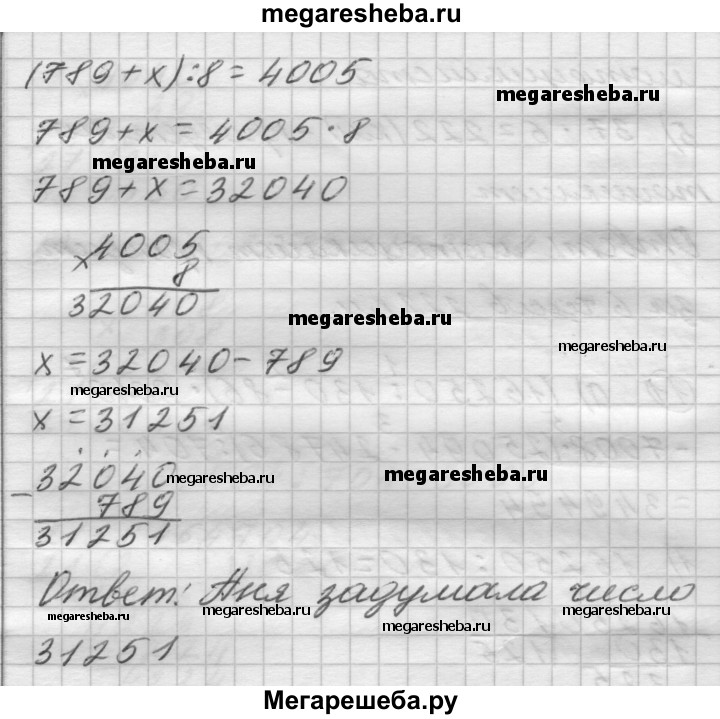 megaresheba.ru
(789+x):8=4005
megaresheba.ru
789+x=4005·8
megaresheba.ru
789+x=32040
4005
x 8
32040
megaresheba.ru
megaresheba.ru
x=32040-789
megaresheba.ru
x=31251
32040
megaresheba.ru
megaresheba.ru
- 789
31251
Ответ: Аня задумала число
megaresheba.ru
megaresheba.ru
megaresheba.ru
megaresheba.ru
31251
Мегарешеба.ру